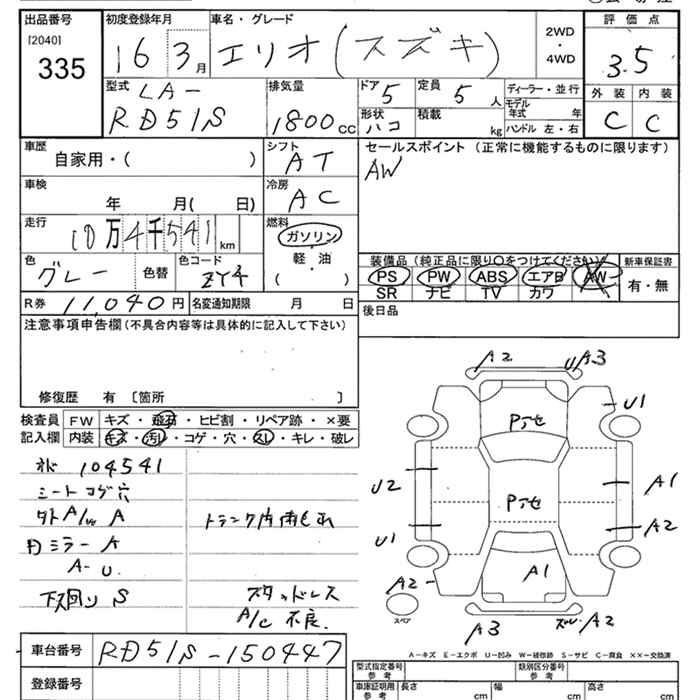 出品番号
[2040]
335
初度登録年月
16 3月
車名・グレード
エリオ(スズキ)
2WD
・
4WD
評価点
3.5
型式
LA-
RD51S
排気量
1800cc
ドア 5
定員 5人
形状 ハコ
積載 kg
ディーラー・並行
モデル年式 年
ハンドル 左・右
外装 内装
C C
車歴
自家用・( )
シフト
AT
車検
年 月( 日)
冷房
AC
走行
10万4千541km
燃料
ガソリン
軽・油
( )
色
グレー
色替
色コード
ZY4
R券 11,040円
名変通知期限 月 日
セールスポイント(正常に機能するものに限ります)
AW
装備品(純正品に限り○をつけてください)
PS PW ABS エアB AW
SR ナビ TV カワ
新車保証書
有・無
後日品
注意事項申告欄(不具合内容等は具体的に記入して下さい)
修復歴 有 [箇所 ]
検査員
記入欄
FW キズ・飛石・ヒビ割・リペア跡・×要
内装 キズ・汚レ・コゲ・穴・スレ・キレ・破レ
104541
シートコゲ穴
A
ミラー A
A- U.
下回り S
トランク内雨もれ
スタッドレス
A/C 不良.
A2
A3
U1
U2
A1
U1
A2
A2
A1
A3
A2
スペア
A-キズ E-エクボ U-凹み W-補修跡 S-サビ C-腐食 ××-交換済
車台番号 RD51S-150447
登録番号
型式指定番号
参考
類別区分番号
参考
車庫証明用
参考
長さ cm
幅 cm
高さ cm